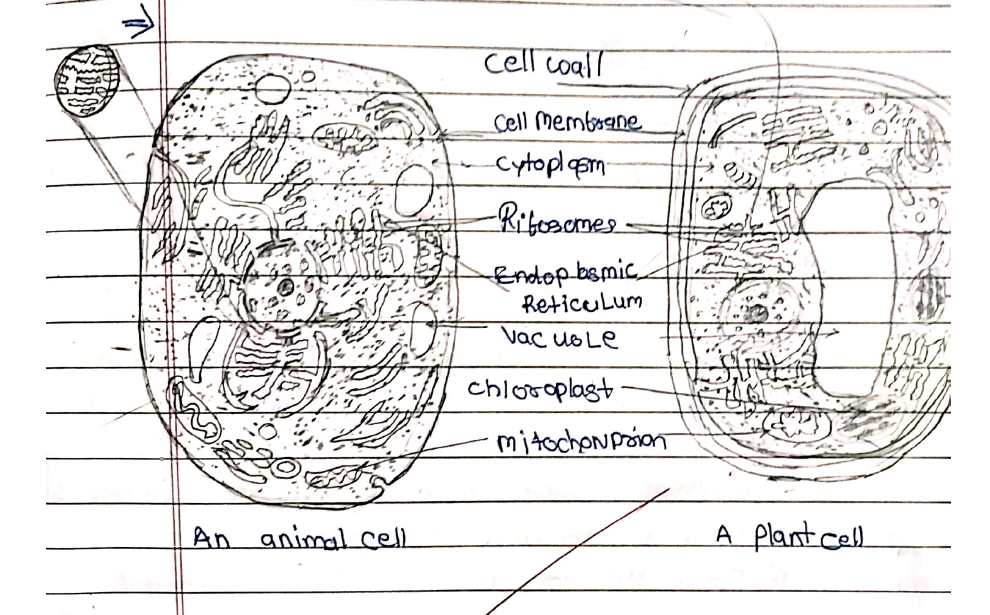 Cell wall
Cell Membrane
Cytoplasm
Ribosomes
Endoplasmic
Reticulum
Vacuole
Chloroplast
Mitochondrion
An animal cell
A plant cell